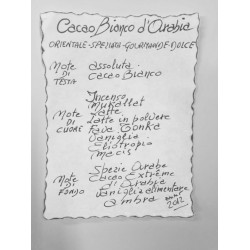 Cacao Bianco d'Arabia
ORIENTALE-SPEZIATA-GOURMAND E DOLCE
Note DI TESTA
assoluta
Cacao Bianco
Note DI CUORE
Incenso
Mukallet
Latte
Latte in polvere
Fava Tonka
Vaniglia
Eliotropio
Macis
Note DI FONDO
Spezie Arabe
Cacao Extreme
di Arabia
Vaniglia alimentare
ambra